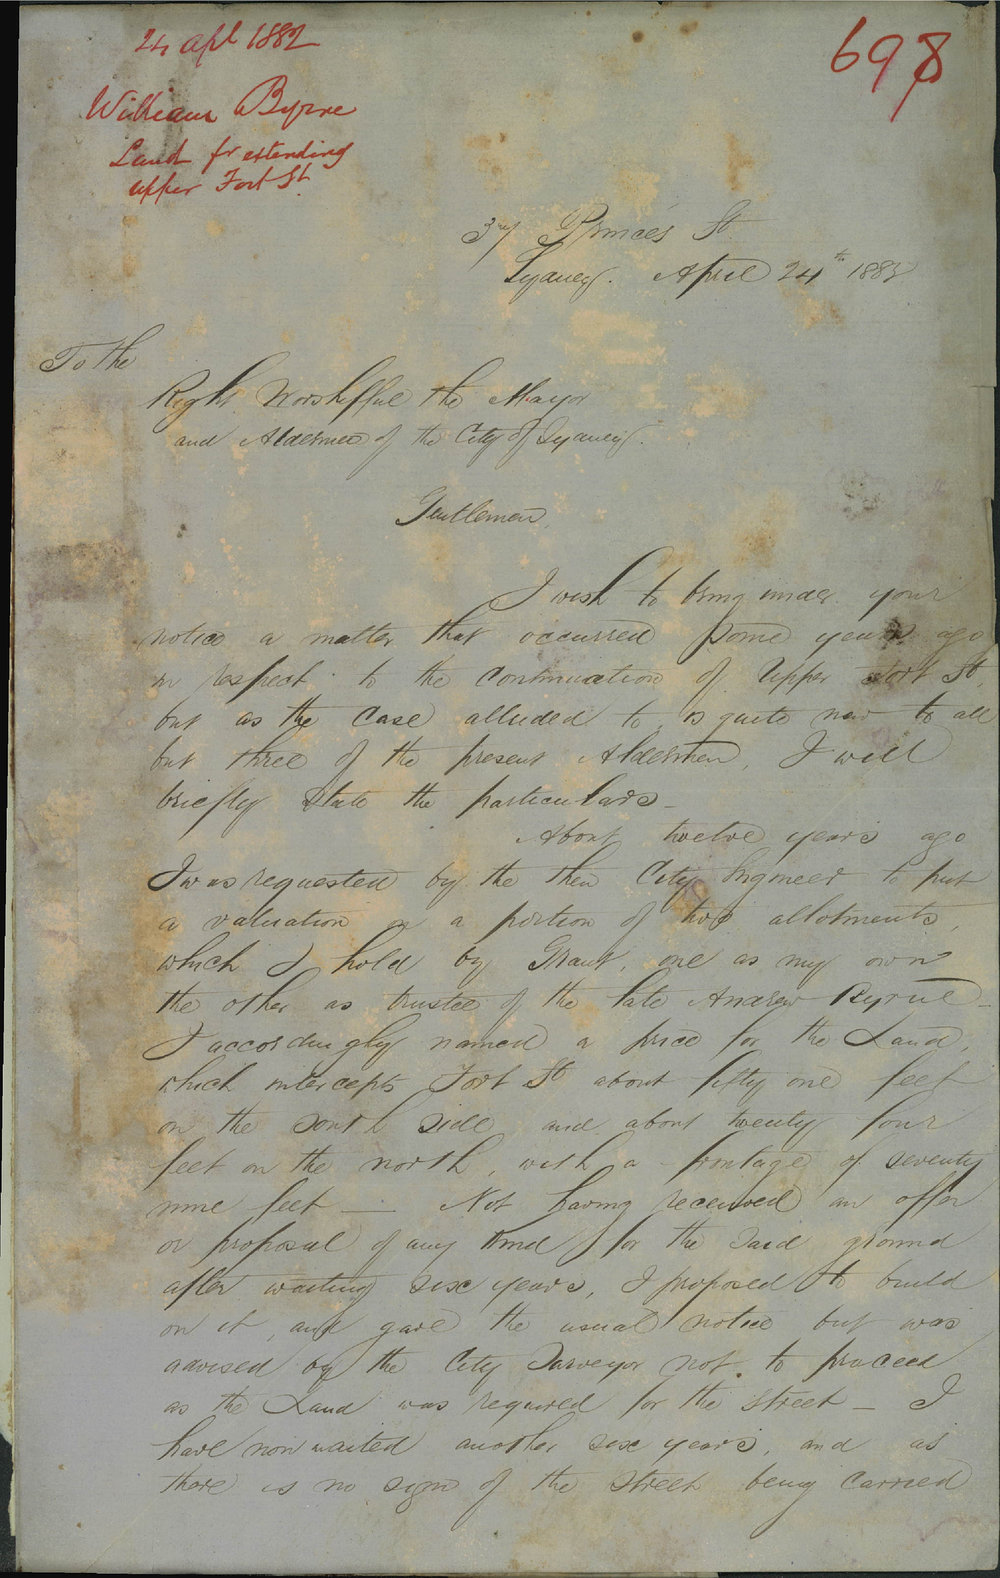 24 Apl 1882
698
William Byrne
Land for extending
Upper Fort St
37 Princes St
Sydney. April 24th 1882
To the
Right Worshipful the Mayor
and Aldermen of the City of Sydney.
Gentlemen,
I wish to bring under your
notice a matter that occurred some years ago
in respect to the continuation of Upper Fort St,
but as the case alluded to is quite new to all
but three of the present Aldermen, I will
briefly state the particulars –
About twelve years ago
I was requested by the then City Engineer to put
a valuation on a portion of two allotments,
which I hold by Grant, one as my own
the other as trustee of the late Andrew Byrne –
I accordingly named a price for the Land,
which intercepts Fort St about fifty one feet
on the south side and about twenty four
feet on the north, with a frontage of seventy
nine feet — Not having received an offer
or proposal of any kind for the said ground
after waiting six years, I proposed to build
on it, and gave the usual notice but was
advised by the City Surveyor not to proceed
as the Land was required for the street – I
have now waited another six years, and as
there is no sign of the street being carried